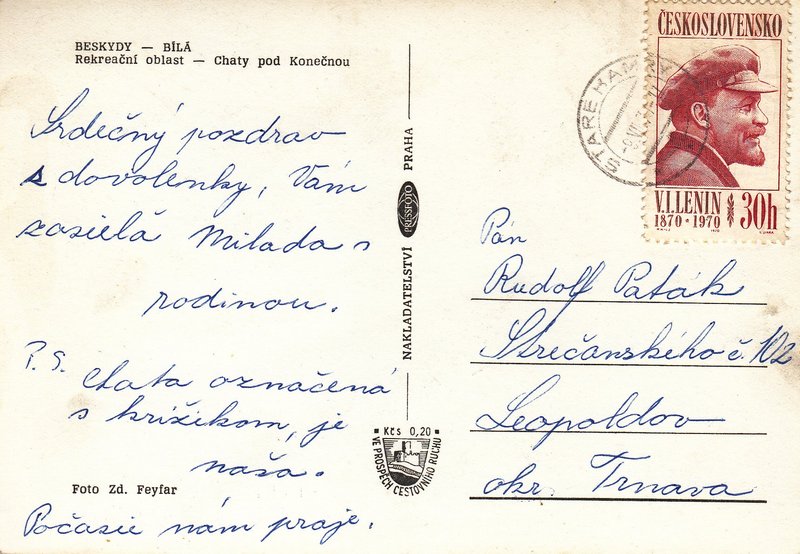 BESKYDY — BÍLÁ
Rekreační oblast — Chaty pod Konečnou
Srdečný pozdrav
s dovolenky, Vám
zasielá Milada s
rodinou.
P.S. Chata označená
s krížikom, je
naša.
Foto Zd. Feyfar
Počasie nám praje.
NAKLADATELSTVÍ PRESSFOTO PRAHA
Kčs 0,20
VE PROSPĚCH CESTOVNÍHO RUCHU
ČESKOSLOVENSKO
V.I.LENIN
1870 * 1970
30h
STARÉ HAM
Pán
Rudolf Paták
Strečanského č. 102
Leopoldov
okr. Trnava